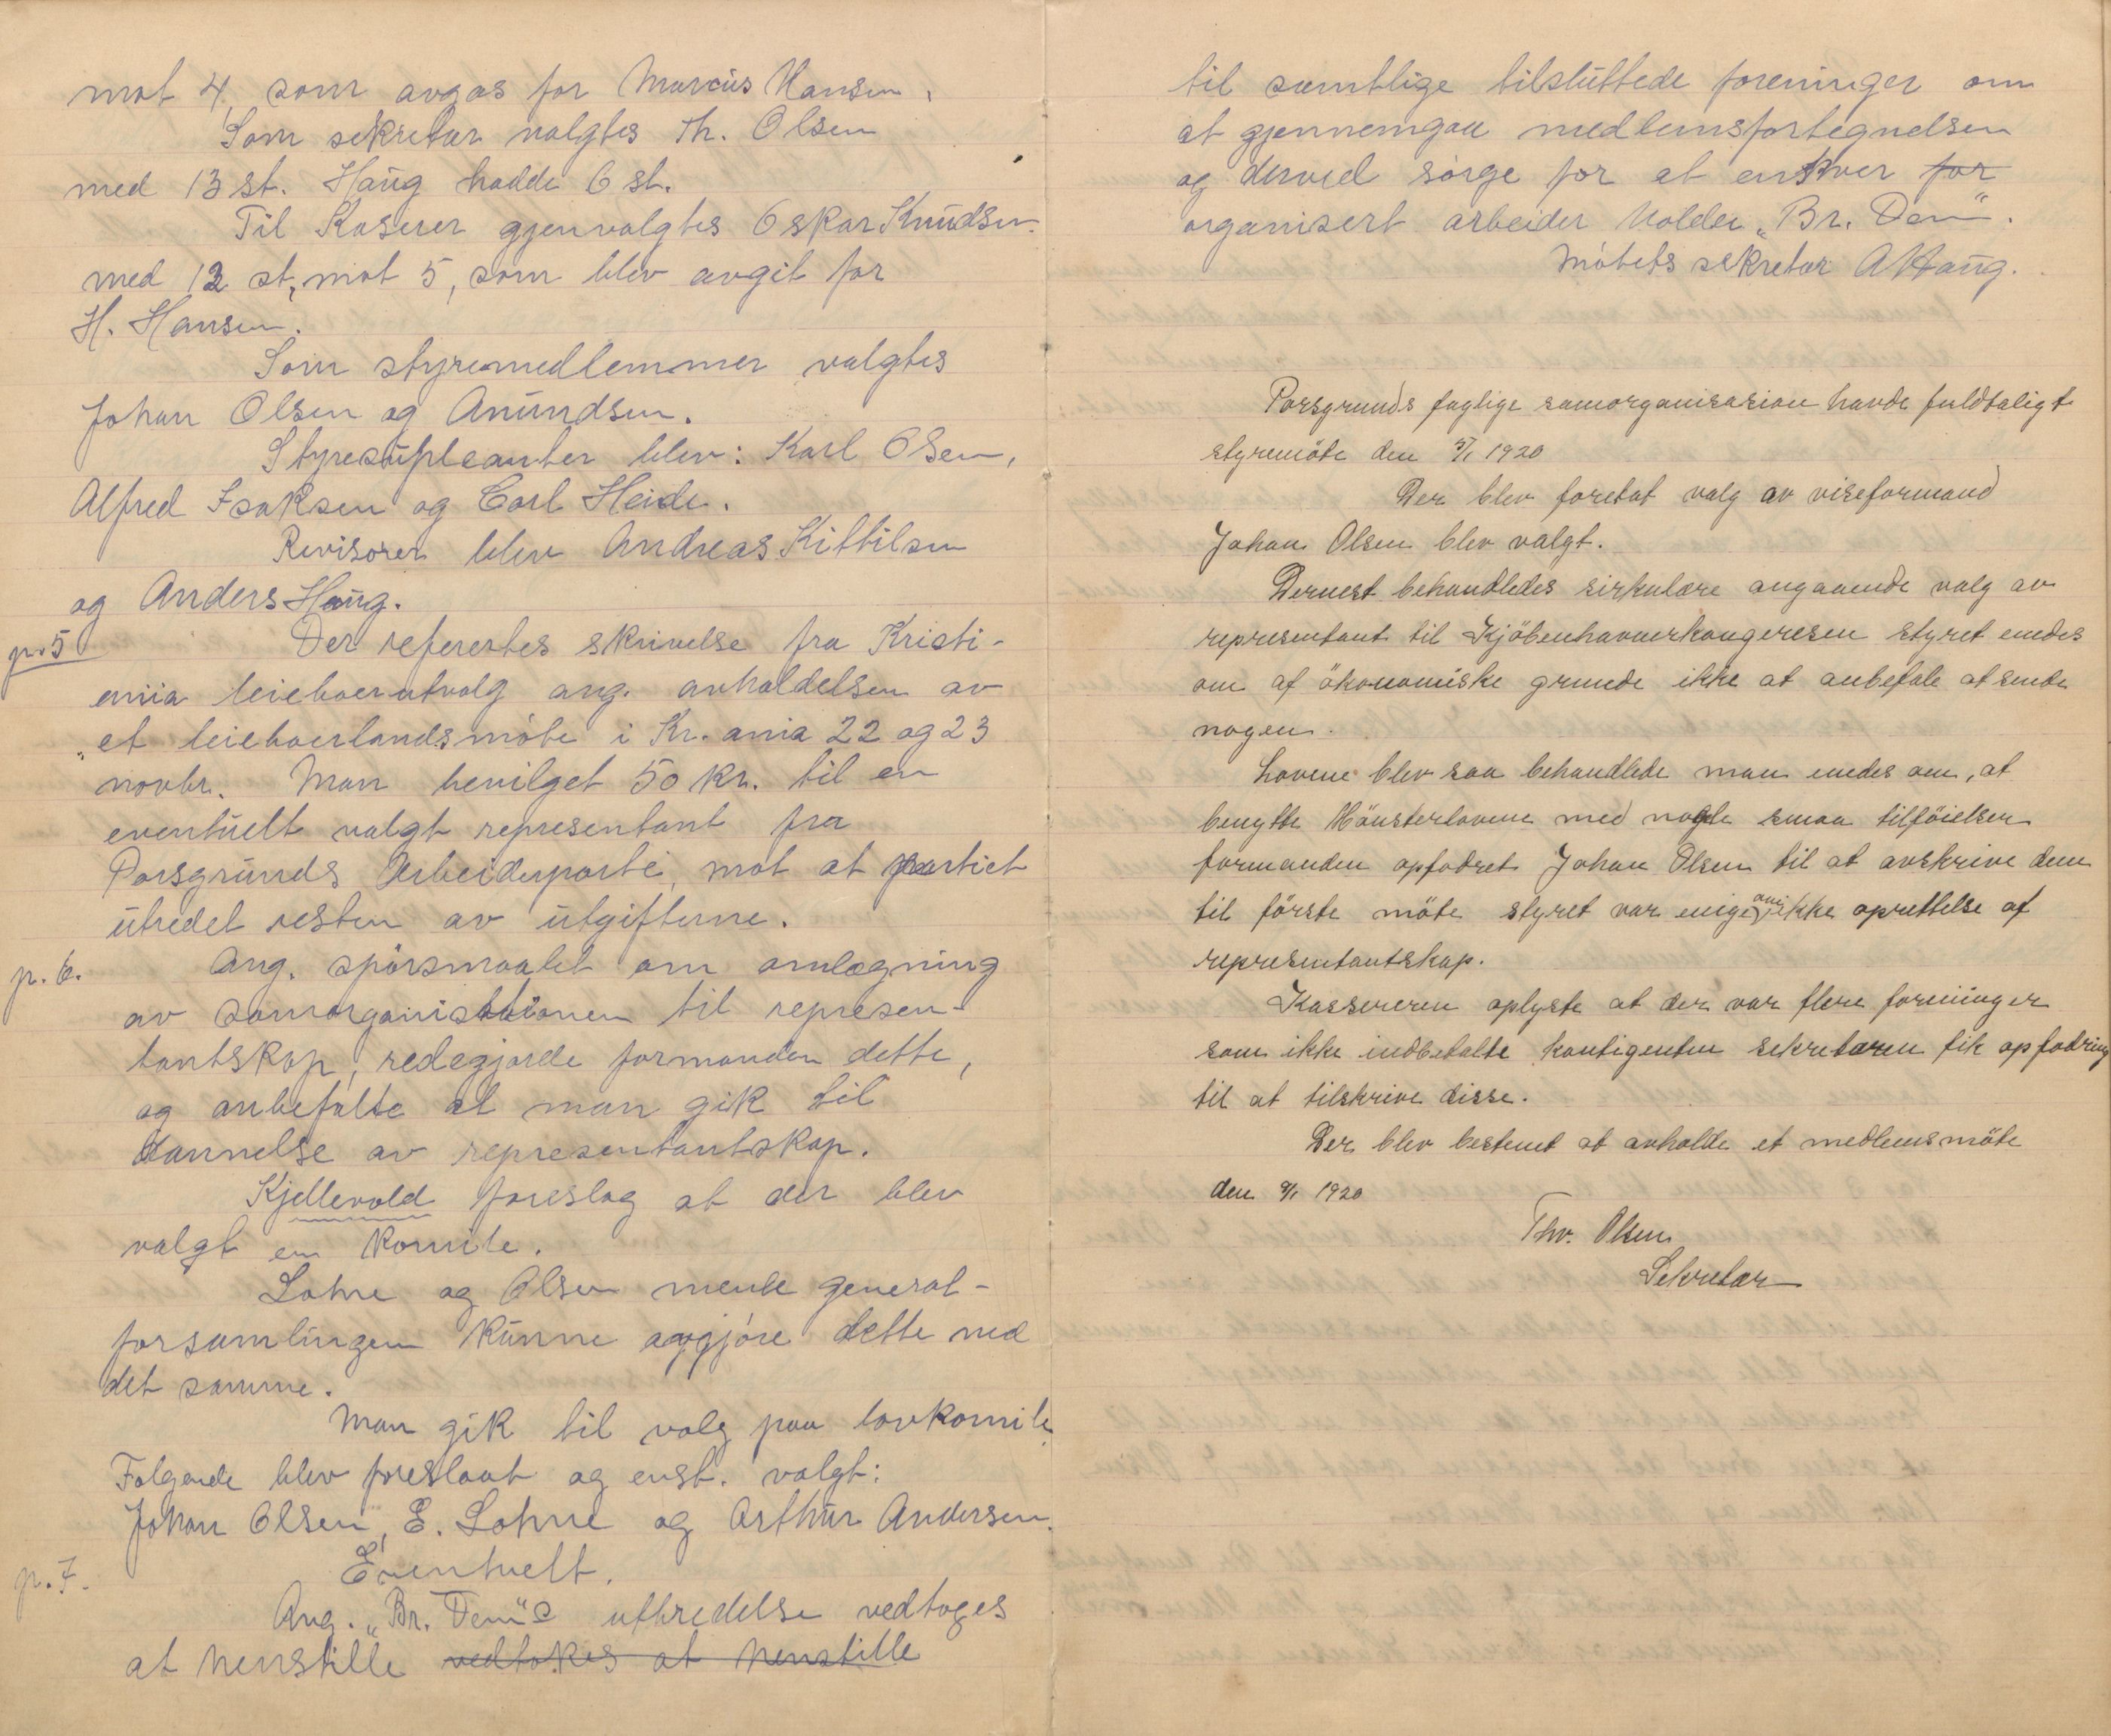 mot 4, som avgas for Marcus Hansen.
Som sekretær valgtes Th. Olsen
med 13 st. Haug hadde 6 st.
Til Kaserer gjenvalgtes Oskar Knudsen
med 12 st, mot 5, som blev avgit for
H. Hansen.
Som styremedlemmer valgtes
Johan Olsen og Amundsen.
Styresupleanter blev: Karl Olsen,
Alfred Isaksen og Carl Heide.
Revisorer blev Andreas Kittilsen
og Anders Haug.
p. 5 Der referertes skrivelse fra Kristi-
ania leieboerutvalg ang. avholdelsen av
et leieboerlandsmöte i Kr. ania 22 og 23
novbr. Man bevilget 50 kr. til en
eventuelt valgt representant fra
Porsgrunds Arbeiderparti, mot at partiet
utredet resten av utgifterne.
p. 6. Ang. spörsmaalet om omlægning
av samorganisationen til represen-
tantskap, redegjorde formanden dette,
og anbefalte at man gik til
dannelse av representantskap.
Kjellevold foreslog at der blev
valgt en komite.
Lohne og Olsen mente general-
forsamlingen kunne avgjöre dette med
det samme.
Man gik til valg paa lovkomite
Følgende blev foreslaat og enst. valgt:
Johan Olsen, E. Lohne og Arthur Andersen.
p. 7. Eventuelt.
Ang. „Br. Dem"s utbredelse vedtoges
at henstille vedtokes at henstille
til samtlige tilsluttede foreninger om
at gjennemgaa medlemsfortegnelsen
og derved sörge for at enhver for
organisert arbeider holder „Br. Dem".
Mötets sekretær A Haug.
Porsgrunds faglige samorganisasion havde fuldtaligt
styremöte den 5/1 1920
Der blev foretat valg av viseformand
Johan Olsen blev valgt.
Dernest behandledes sirkulære angaaende valg av
representant til Kjöbenhavnerkongeresen styret enedes
om af ökonomiske grunde ikke at anbefale at sende
nogen.
Lovene blev saa behandlede man enedes om, at
benytte Mönsterlovene med nogle smaa tilföielser
formanden opfodret Johan Olsen til at avskrive dem
til förste möte styret var enige om ikke oprettelse af
representantskap.
Kassereren oplyste at der var flere foreninger
som ikke indbetalte kontigenten sekretæren fik opfodring
til at tilskrive disse.
Der blev bestemt at avholde et medlemsmöte
den 9/1 1920
Thv. Olsen
Sekretær